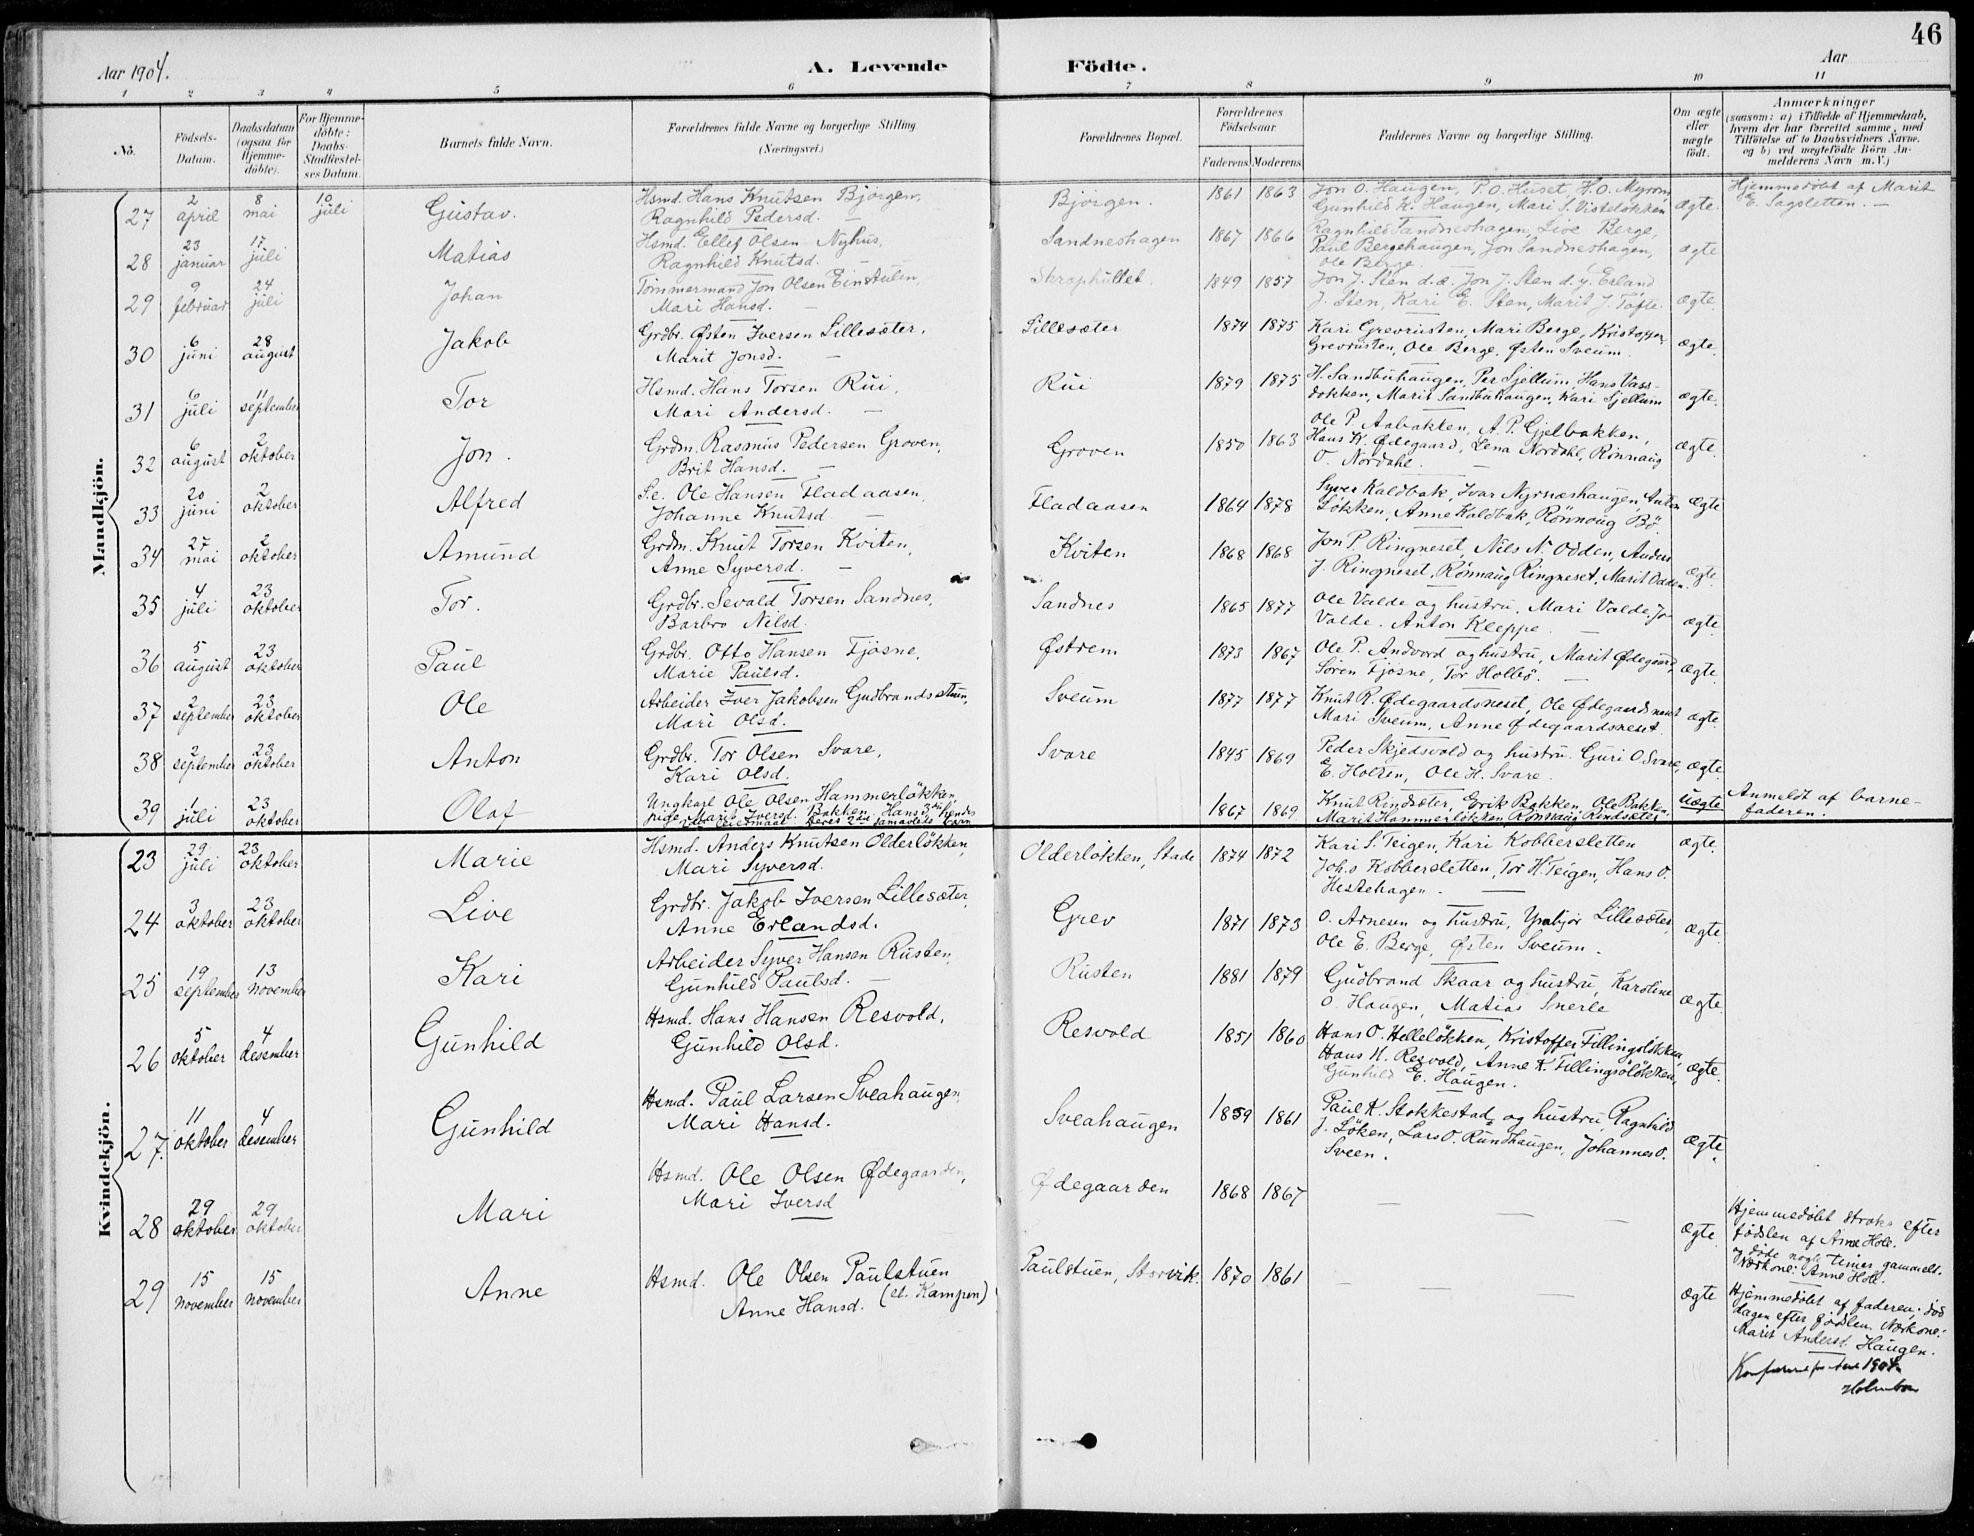 46
Aar 1904.
A. Levende
Födte.
Aar
1 2 3 4 5 6 7 8 9 10 11
No.
Födsels-Datum.
Daabsdatum (ogsaa for Hjemme-döbte).
For Hjemme-döbte: Daabs-Stadfæstel-ses Datum.
Barnets fulde Navn.
Forældrenes fulde Navne og borgerlige Stilling. (Næringsvei.)
Forældrenes Bopæl.
Forældrenes Födselsaar.
Faderens Moderens
Faddernes Navne og borgerlige Stilling.
Om ægte eller uægte födt.
Anmærkninger
(saasom: a) i Tilfælde af Hjemmedaab,
hvem der har forrettet samme, med
Tilföielse af to Daabsvidners Navne.
og b) ved uægtefödte Börn An-
melderens Navn m. V.)
Mandkjön.
27 2 april 8 mai 10 juli Gustav. Hsmd. Hans Knutsen Bjørgen, Bjørgen. 1861 1863 Jon O. Haugen, P. O. Huset, H. O. Myrom, ægte. Hjemmedøbt af Marit
Ragnhild Pedersd. — Gunhild K. Haugen, Mari S. Visteløkken E. Sagsletten. —
28 23 januar 17 juli Matias Hsmd. Ellef Olsen Nyhus, Sandneshagen 1867 1866 Ragnhild Sandneshagen, Live Berge, ægte
Ragnhild Knutsd. — Paul Bergehaugen, Jon Sandneshagen,
Ole Berge.
29 9 februar 24 juli Johan Tømmermand Jon Olsen Einstulen, Skraphullet. 1849 1857 Jon J. Sten d.æ. Jon J. Sten d.y. Erland ægte.
Mari Hansd. — J. Sten, Kari E. Sten, Marit J. Tofte.
30 6 juni 28 august Jakob Grdbr. Østen Iversen Lillesæter, Lillesæter 1874 1875 Kari Grevrusten, Mari Berge, Kristoffer ægte.
Marit Jonsd. — Grevrusten, Ole Berge, Østen Sveum.
31 6 juli 11 september Tor Hsmd. Hans Torsen Rui, Rui 1879 1875 H. Sandbuhaugen, Per Sjellum, Hans Vass- ægte.
Mari Andersd. — dokken, Marit Sandbuhaugen, Kari Sjellum
32 6 august 2 oktober Jon. Grdm. Rasmus Pedersen Groven, Groven 1850 1863 Ole P. Aabakken, A. P. Gjelbakken, ægte.
Brit Hansd. — Hans K. Ødegaard, Lena Nordahl, Rønnaug
O. Nordahl. —
33 20 juni 2 oktober Alfred S.e. Ole Hansen Fladaasen, Fladaasen 1864 1878 Syver Kaldbak, Ivar Nyrnæshaugen, Anton ægte
Johanne Knutsd — Løkken, Anne Kaldbak, Rønnoug Bø.
34 27 mai 2 oktober Amund Grdm. Knut Torsen Kviten, Kviten 1868 1868 Jon P. Ringneset, Nils N. Odden, Anders ægte.
Anne Syversd. — J. Ringneset, Rønnaug Ringneset, Marit Odden.
35 4 juli 23 oktober Tor. Grdbr. Sevald Torsen Sandnes, Sandnes 1865 1877 Ole Valde og hustru, Mari Valde, Jo ægte
Barbro Nilsd. Valde. Anton Kleppe. —
36 5 august 23 oktober Paul Grdbr. Otto Hansen Fjosne, Østrem 1873 1867 Ole P. Andvord og hustru, Marit Ødegaard, ægte.
Marie Paulsd. Søren Fjosne, Tor Hollbø. —
37 2 september 23 oktober Ole Arbeider Iver Jakobsen Gudbrandsstuen, Sveum 1877 1877 Knut R. Ødegaardsneset, Ole Ødegaardsneset ægte.
Mari Olsd. Mari Sveum, Anne Ødegaardsneset.
38 2 september 23 oktober Anton Grdbr. Tor Olsen Svare, Svare 1845 1869 Peder Skjedsvold og hustru. Guri O Svare, ægte.
Kari Olsd. E. Holten, Ole H. Svare.
39 1 juli 23 oktober Olaf Ungkarl Ole Olsen Hammerløkken 1867 1869 Knut Rindsæter, Erik Bakken, Ole Bakken uægte Anmeldt af barne-
pige Marit Iversd. Bakken. Hans 3die hendes Marit Hammerløkken, Rønnaug Rindsæter faderen.
2det leiermaal deres 2det samavlede barn
Kvindekjön.
23 29 juli 23 oktober Marie Hsmd. Anders Knutsen Olderløkken, Olderløkken, Stade 1874 1872 Kari S. Teigen, Kari Kobbersletten ægte.
Mari Syversd. Johs Kobbersletten, Tor H. Teigen, Hans O.
Hestehagen. —
24 3 oktober 23 oktober Live Grdbr. Jakob Iversen Lillesæter, Grev 1871 1873 O. Arnesen og hustru, Ynbjør Lillesæter, ægte.
Anne Erlandsd. Ole E. Berge, Østen Sveum.
25 19 september 13 november Kari Arbeider Syver Hansen Rusten, Rusten 1881 1879 Gudbrand Skaar og hustru, Karoline ægte.
Gunhild Paulsd. — O. Haugen, Matias Snerle
26 5 oktober 4 desember Gunhild Hsmd. Hans Hansen Resvold, Resvold 1851 1860 Hans O. Helleløkken, Kristoffer Fillingsløkken, ægte.
Gunhild Olsd. Hans H. Resvold, Anne K. Fillingsløkken,
Gunhild E. Haugen.
27. 11 oktober 4 desember Gunhild Hsmd. Paul Larsen Sveahaugen, Sveahaugen 1859 1861 Paul K. Stokkestad og hustru, Ragnhild ægte.
Mari Hansd. J. Løken, Lars O. Rundhaugen, Johannes O.
Sveen.
28 29 oktober 29 oktober Mari Hsmd. Ole Olsen Ødegaarden, Ødegaarden 1868 1867 — — — ægte.
Mari Iversd
Hjemmedøbt straks efter
fødslen af Anne Holl.
og døde nogle timer gammelt.
Nærkone: Anne Holl.
29 15 november 15 november Anne Hsmd. Ole Olsen Paulstuen Paulstuen, Storvik. 1870 1861 — — — ægte
Anne Hansd. (el. Kampen)
Hjemmedøbt af faderen; død
dagen efter fødslen. Nærkone:
Marit Andersd. Haugen.
1904
Holmboe